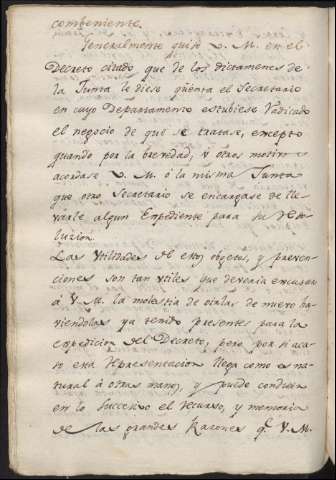 combeniente.
Generalmente quiso V. M. en el
Decreto citado que de los dictamenes de
la Junta le diese quenta el Secretario
en cuyo Departamento estubiese radicado
el negocio de que se tratase, excepto
quando por la brevedad, u otros motivos
acordase V. M. ó la misma Junta
que otro Secretario se encargase de lle
varle algun Expediente para su reso
lucion.
Las Utilidades de estos objetos, y preven
ciones son tan utiles que deveria excusar
á V. M. la molestia de oirlas de nuevo ha
viendolas ya tenido presentes para la
expedicion del Decreto, pero por si aca
so esta Representacion llega como es na
tural á otras manos, y puede conducir
en lo succesivo el recurso, y memoria
de las grandes Razones qe. V. M.